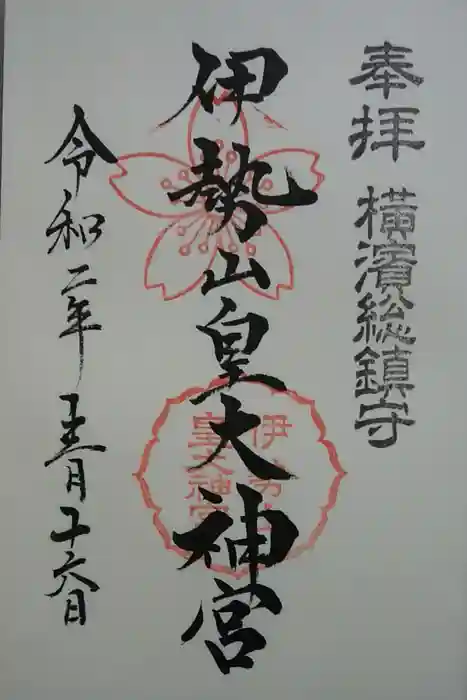 奉拝 横濱総鎮守
伊勢山皇大神宮
伊勢山
皇大神宮
令和二年
十六日